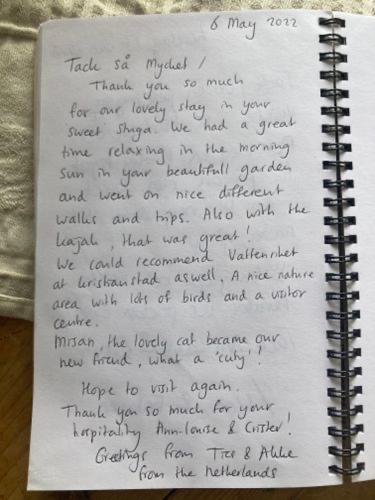 6 May 2022
Tack så Mycket /
Thank you so much
for our lovely stay in your
sweet Stuga. We had a great
time relaxing in the morning
sun in your beautifull garden
and went on nice different
walks and trips. Also with the
kajak, that was great!
We could recommend Vattenriket
at kristianstad aswell. A nice nature
area with lots of birds and a visitor
centre.
Misan, the lovely cat became our
new friend, what a 'cuty'!
Hope to visit again.
Thank you so much for your
hospitality Ann-Louise & Crister!
Greetings from Ties &
from the Netherlands